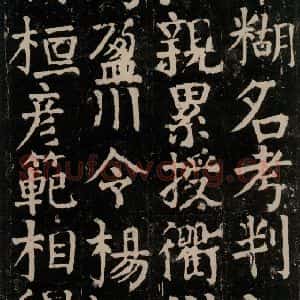 糊名考判
親累授衢
盈川令楊
桓彦範相